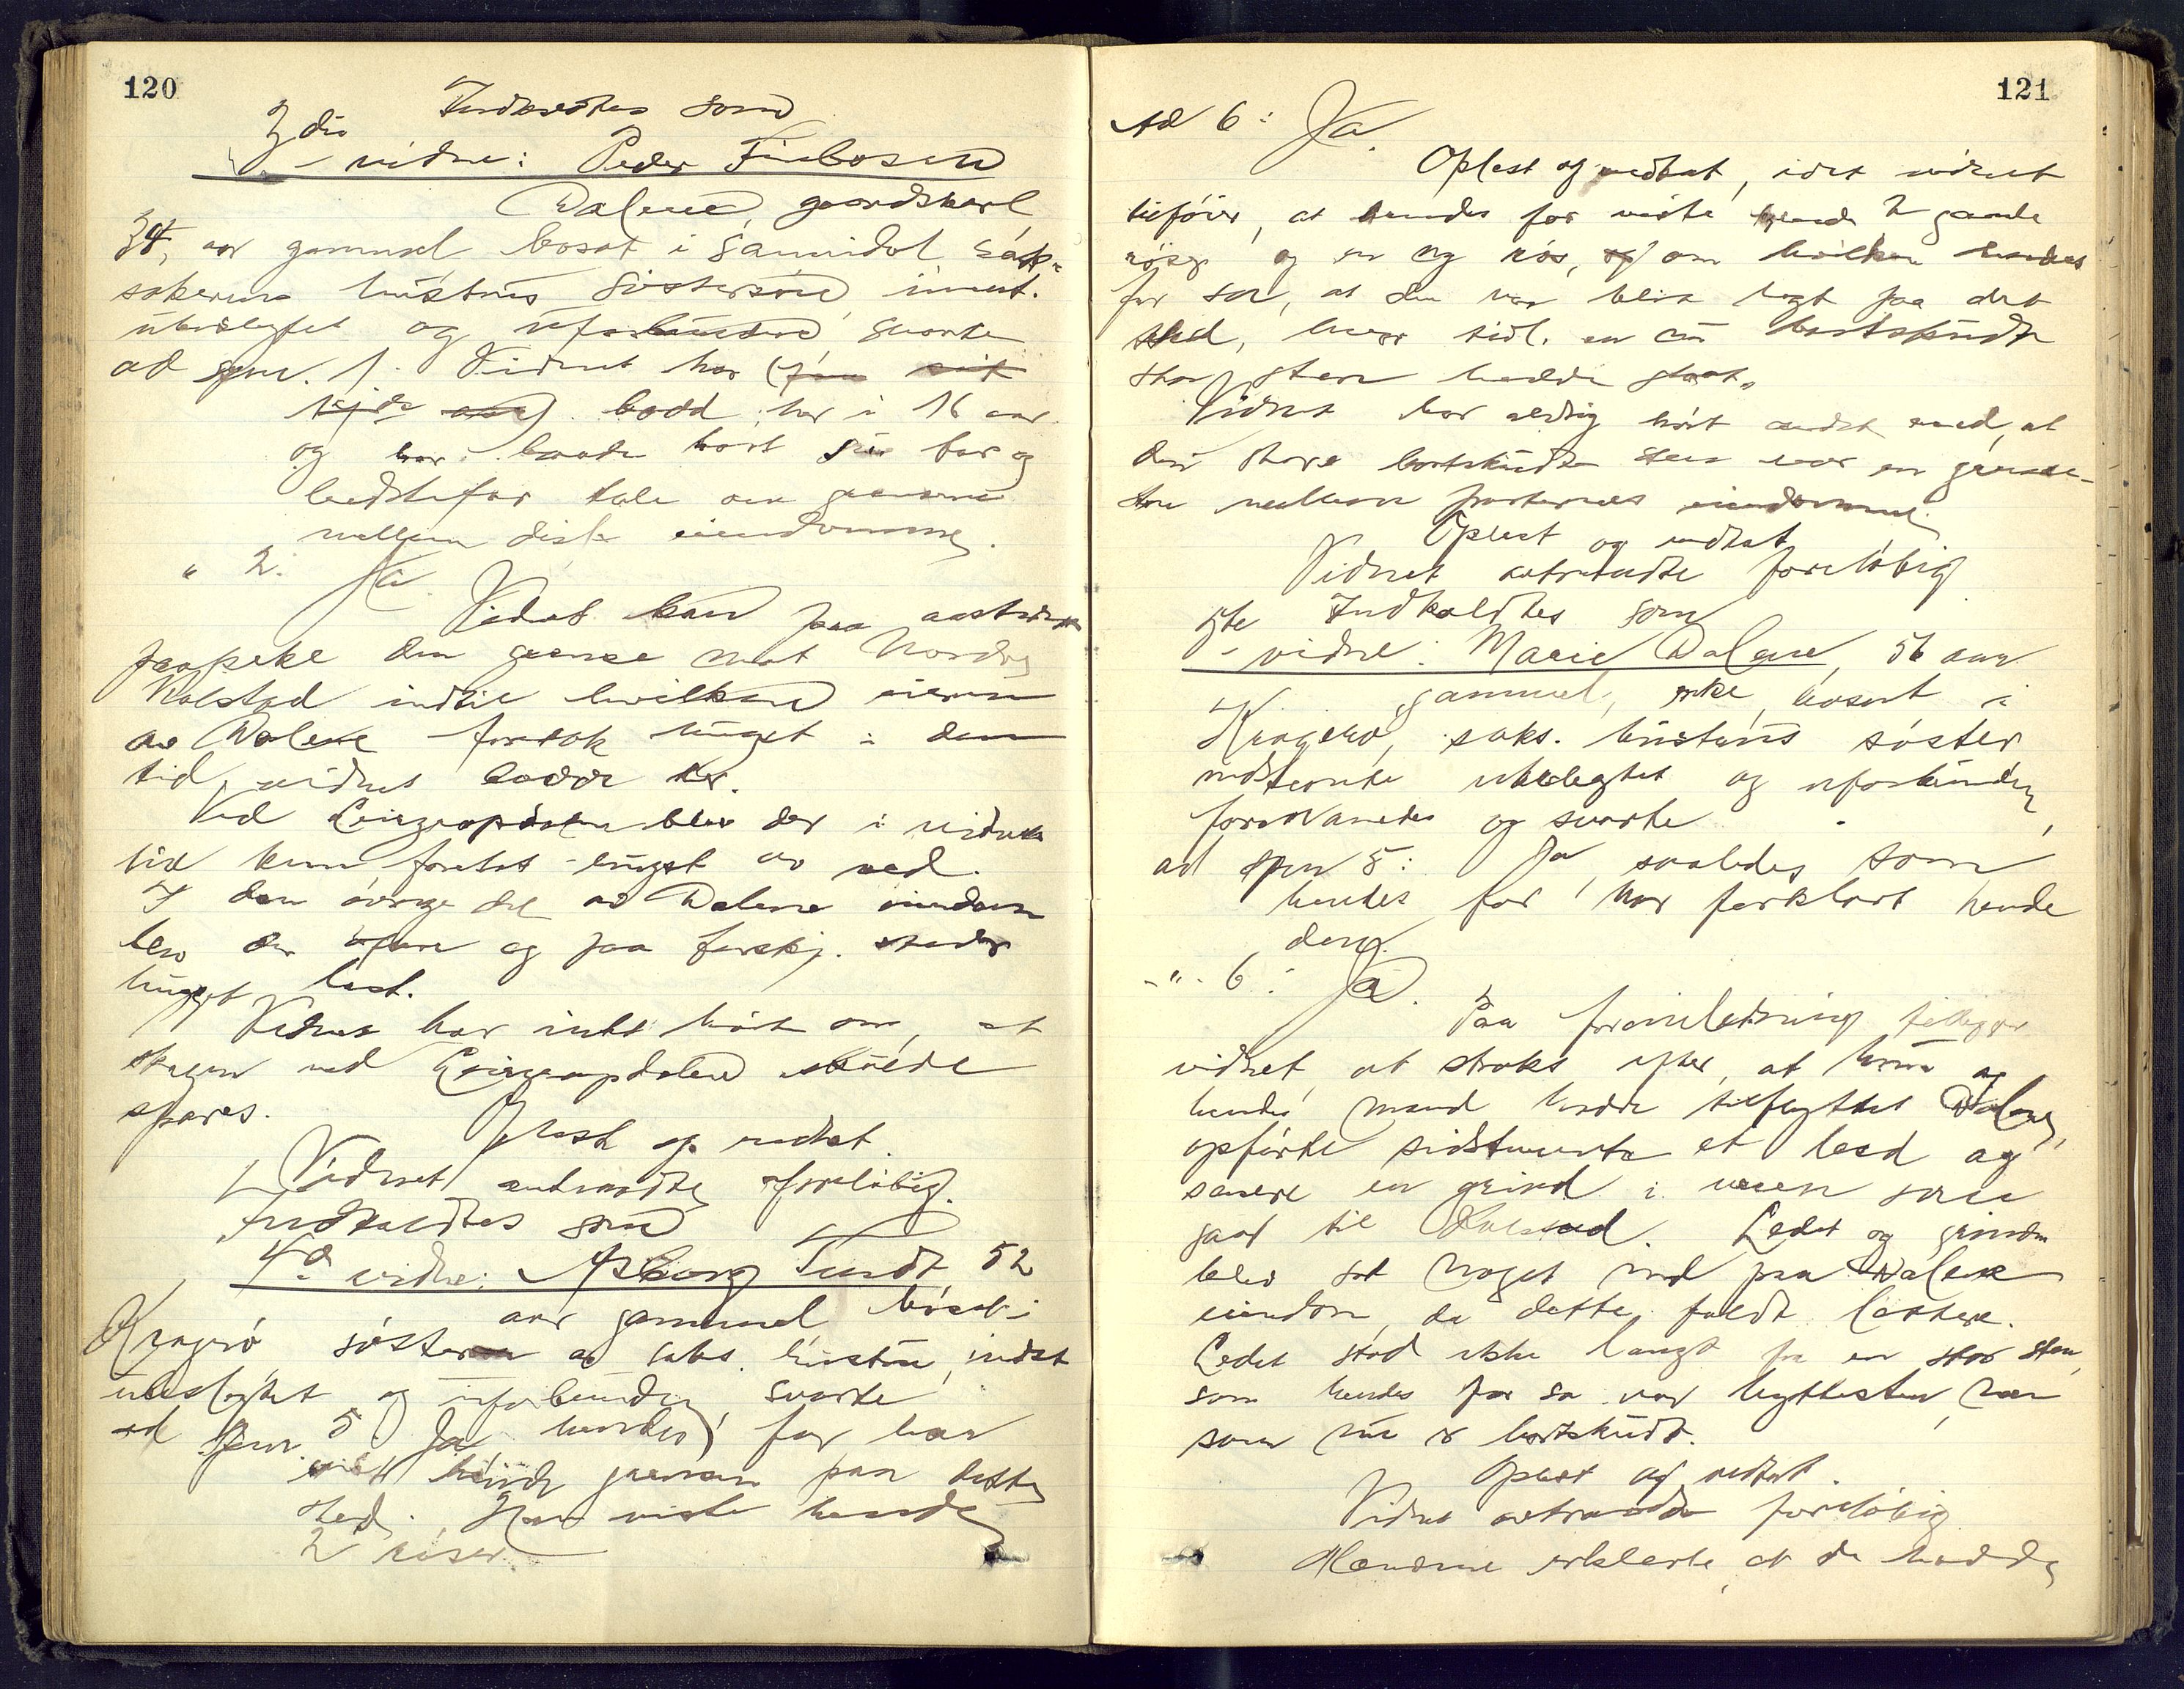 120
Indkaldtes som
3die
vidne: Peder Finbosen
Dalene, gaardskarl
34, aar gammel bosat i Sannidal sak-
søkerens hustrus søstersøn
ubeslegtet og uforbunden svarte
ad spm. 1. Vidnet har
bodd her i 16 aar
og har baade hørt sin far og
bedstefar tale om grænsen
mellem disse eiendomme.
" 2. Ja.
Vidnet kan paa aastedet
paapeke den grænse mot Nordre
Kolstad indtil hvilken eieren
av Dalene foretok hugst i den
tid, vidnet bodde der.
Ved blev der i vidnets
tid kun foretat hugst av ved.
I den øvrige del av Dalene eiendom
blev der oftere og paa forskj. steder
hugget last.
Vidnet har intet hørt om, at
skogen ved skulde
spares.
Oplæst og vedtat.
Vidnet entraadte foreløbig.
Indkaldtes som
4de vidne: Asborg Tundt, 52
aar gammel bosat i
Kragerø søster av saks. hustru, indst
ubeslegtet og uforbunden, svarte
ad spm. 5 Ja, hendes far har
vist hende grænsen paa dette
sted. Han viste hende
2 røser
121
Ad 6: Ja.
Oplest og vedtat, idet vidnet
tilføier, at hendes far viste hende 2 gamle
røser og en ny røs, om hvilken hendes
far sa, at den var blit lagt paa det
sted, hvor tidl. en nu bortskudt
stor sten hadde staat.
Vidnet har aldrig hørt andet end, at
den store bortskudte sten var en grænse-
sten mellem parternes eiendommer.
Oplest og vedtat
Vidnet entraadte foreløbig
Indkaldtes som
5te vidne: Marie Dalene, 56 aar
gammel, enke, bosat i
Kragerø, saks. hustrus søster
indstevnte ubeslegtet og uforbunden,
formanedes og svarte
ad spm 5: Ja, saaledes som
hendes far har forklart hende
den.
-"- 6: Ja.
Paa foranledning tilføier
vidnet at straks efter, at hun og
hendes mand hadde tilflyttet Dalene,
opførte sidstnevnte et leed og
senere en grind i veien som
gaar til Kolstad. Ledet og grinden
blev sat noget ind paa Dalene
eiendom, da dette faldt lettere.
Ledet stod ikke langt fra en stor sten,
som hendes far sa var byttesten, men
som nu er bortskudt.
Oplest og vedtat.
Vidnet entraadte foreløbig
Mændene erklærte, at de hadde